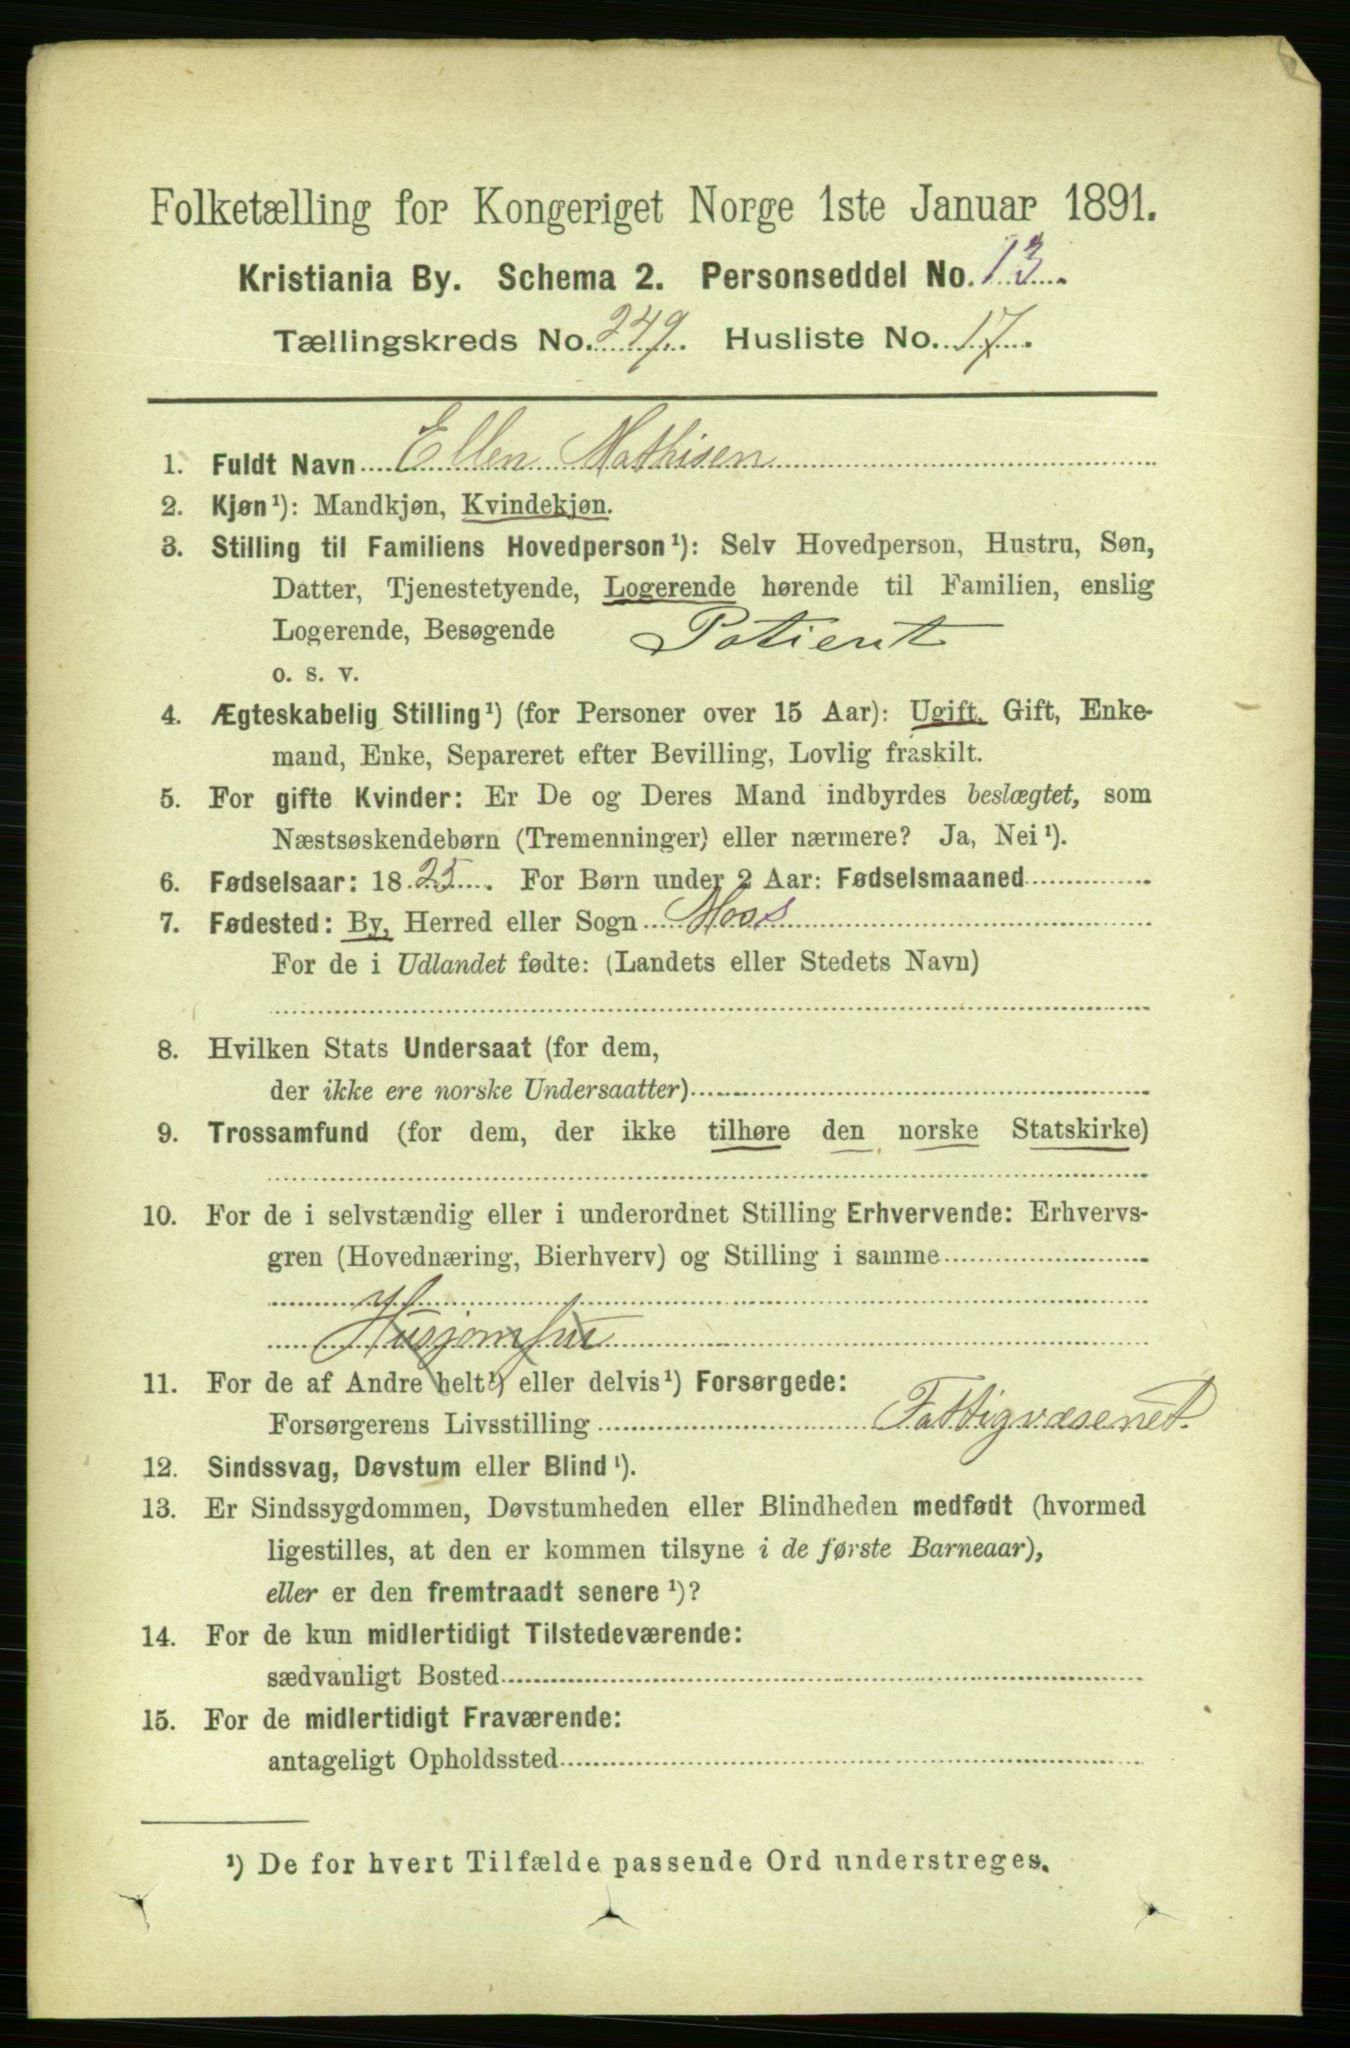 Folketælling for Kongeriget Norge 1ste Januar 1891.
Kristiania By. Schema 2. Personseddel No. 13.
Tællingskreds No. 249. Husliste No. 17.
1. Fuldt Navn Ellen Mathisen
2. Kjøn¹): Mandkjøn, Kvindekjøn.
3. Stilling til Familiens Hovedperson¹): Selv Hovedperson, Hustru, Søn,
Datter, Tjenestetyende, Logerende hørende til Familien, enslig
Logerende, Besøgende Patient
o. s. v.
4. Ægteskabelig Stilling¹) (for Personer over 15 Aar): Ugift, Gift, Enke-
mand, Enke, Separeret efter Bevilling, Lovlig fraskilt.
5. For gifte Kvinder: Er De og Deres Mand indbyrdes beslægtet, som
Næstsøskendebørn (Tremenninger) eller nærmere? Ja, Nei¹).
6. Fødselsaar: 1825. For Børn under 2 Aar: Fødselsmaaned
7. Fødested: By, Herred eller Sogn Moss
For de i Udlandet fødte: (Landets eller Stedets Navn)
8. Hvilken Stats Undersaat (for dem,
der ikke ere norske Undersaatter)
9. Trossamfund (for dem, der ikke tilhøre den norske Statskirke)
10. For de i selvstændig eller i underordnet Stilling Erhvervende: Erhvervs-
gren (Hovednæring, Bierhverv) og Stilling i samme
Husjomfru
11. For de af Andre helt¹) eller delvis¹) Forsørgede:
Forsørgerens Livsstilling Fattigvæsenet
12. Sindssvag, Døvstum eller Blind¹).
13. Er Sindssygdommen, Døvstumheden eller Blindheden medfødt (hvormed
ligestilles, at den er kommen tilsyne i de første Barneaar),
eller er den fremtraadt senere¹)?
14. For de kun midlertidigt Tilstedeværende:
sædvanligt Bosted
15. For de midlertidigt Fraværende:
antageligt Opholdssted
¹) De for hvert Tilfælde passende Ord understreges.